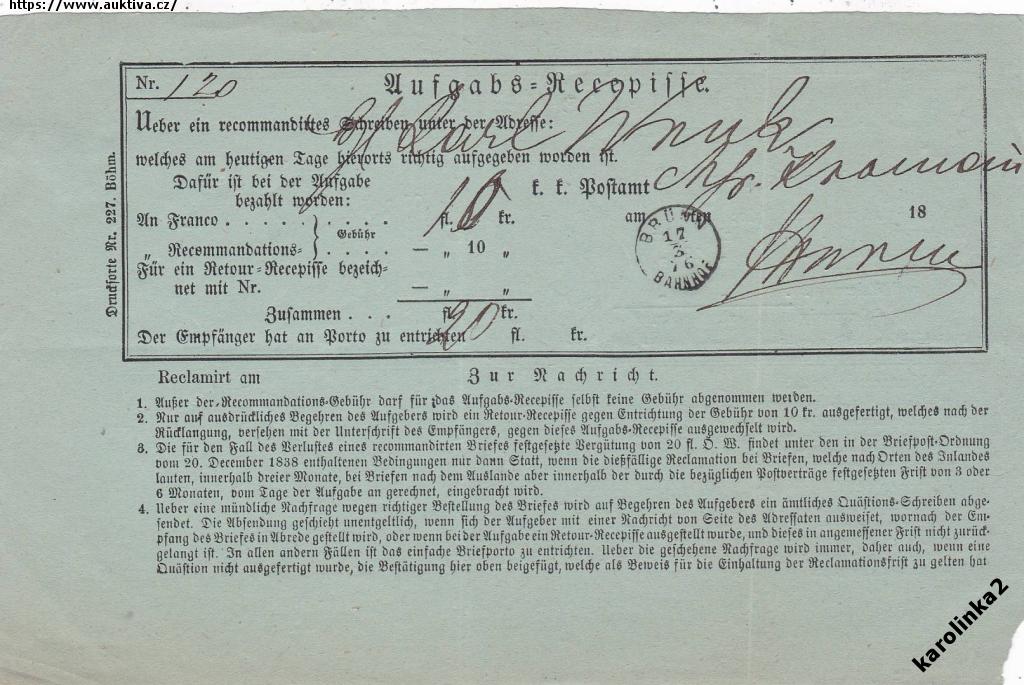 https://www.auktiva.cz/
Nr. 120 Aufgabs-Recepisse.
Ueber ein recommandirtes Schreiben unter der Adresse: Karl
welches am heutigen Tage hierorts richtig aufgegeben worden ist.
Dafür ist bei der Aufgabe
bezahlt worden:
k. k. Postamt
An Franco . . . . . . . . . fl. 10 kr.
am ten 18
Gebühr
„ Recommandations- . . . . — „ 10 „
BRÜNN
17
3
76
BAHNHOF
Für ein Retour-Recepisse bezeich-
net mit Nr. — „ „
Zusammen . . . fl. 20 kr.
Der Empfänger hat an Porto zu entrichten fl. kr.
Druckforte Nr. 227. Böhm.
Reclamirt am Zur Nachricht.
1. Außer der Recommandations-Gebühr darf für das Aufgabs-Recepisse selbst keine Gebühr abgenommen werden.
2. Nur auf ausdrückliches Begehren des Aufgebers wird ein Retour-Recepisse gegen Entrichtung der Gebühr von 10 kr. ausgefertigt, welches nach der
Rücklangung, versehen mit der Unterschrift des Empfängers, gegen dieses Aufgabs-Recepisse ausgewechselt wird.
3. Die für den Fall des Verlustes eines recommandirten Briefes festgesetzte Vergütung von 20 fl. Ö. W. findet unter den in der Briefpost-Ordnung
vom 20. December 1838 enthaltenen Bedingungen nur dann Statt, wenn die dießfällige Reclamation bei Briefen, welche nach Orten des Inlandes
lauten, innerhalb dreier Monate, bei Briefen nach dem Auslande aber innerhalb der durch die bezüglichen Postverträge festgesetzten Frist von 3 oder
6 Monaten, vom Tage der Aufgabe an gerechnet, eingebracht wird.
4. Ueber eine mündliche Nachfrage wegen richtiger Bestellung des Briefes wird auf Begehren des Aufgebers ein ämtliches Quästions-Schreiben abge-
sendet. Die Absendung geschieht unentgeltlich, wenn sich der Aufgeber mit einer Nachricht von Seite des Adressaten ausweiset, wornach der Em-
pfang des Briefes in Abrede gestellt wird, oder wenn bei der Aufgabe ein Retour-Recepisse ausgestellt wurde, und dieses in angemessener Frist nicht zurück-
gelangt ist. In allen andern Fällen ist das einfache Briefporto zu entrichten. Ueber die geschehene Nachfrage wird immer, daher auch, wenn eine
Quästion nicht ausgefertigt wurde, die Bestätigung hier oben beigefügt, welche als Beweis für die Einhaltung der Reclamationsfrist zu gelten hat
karolinka2